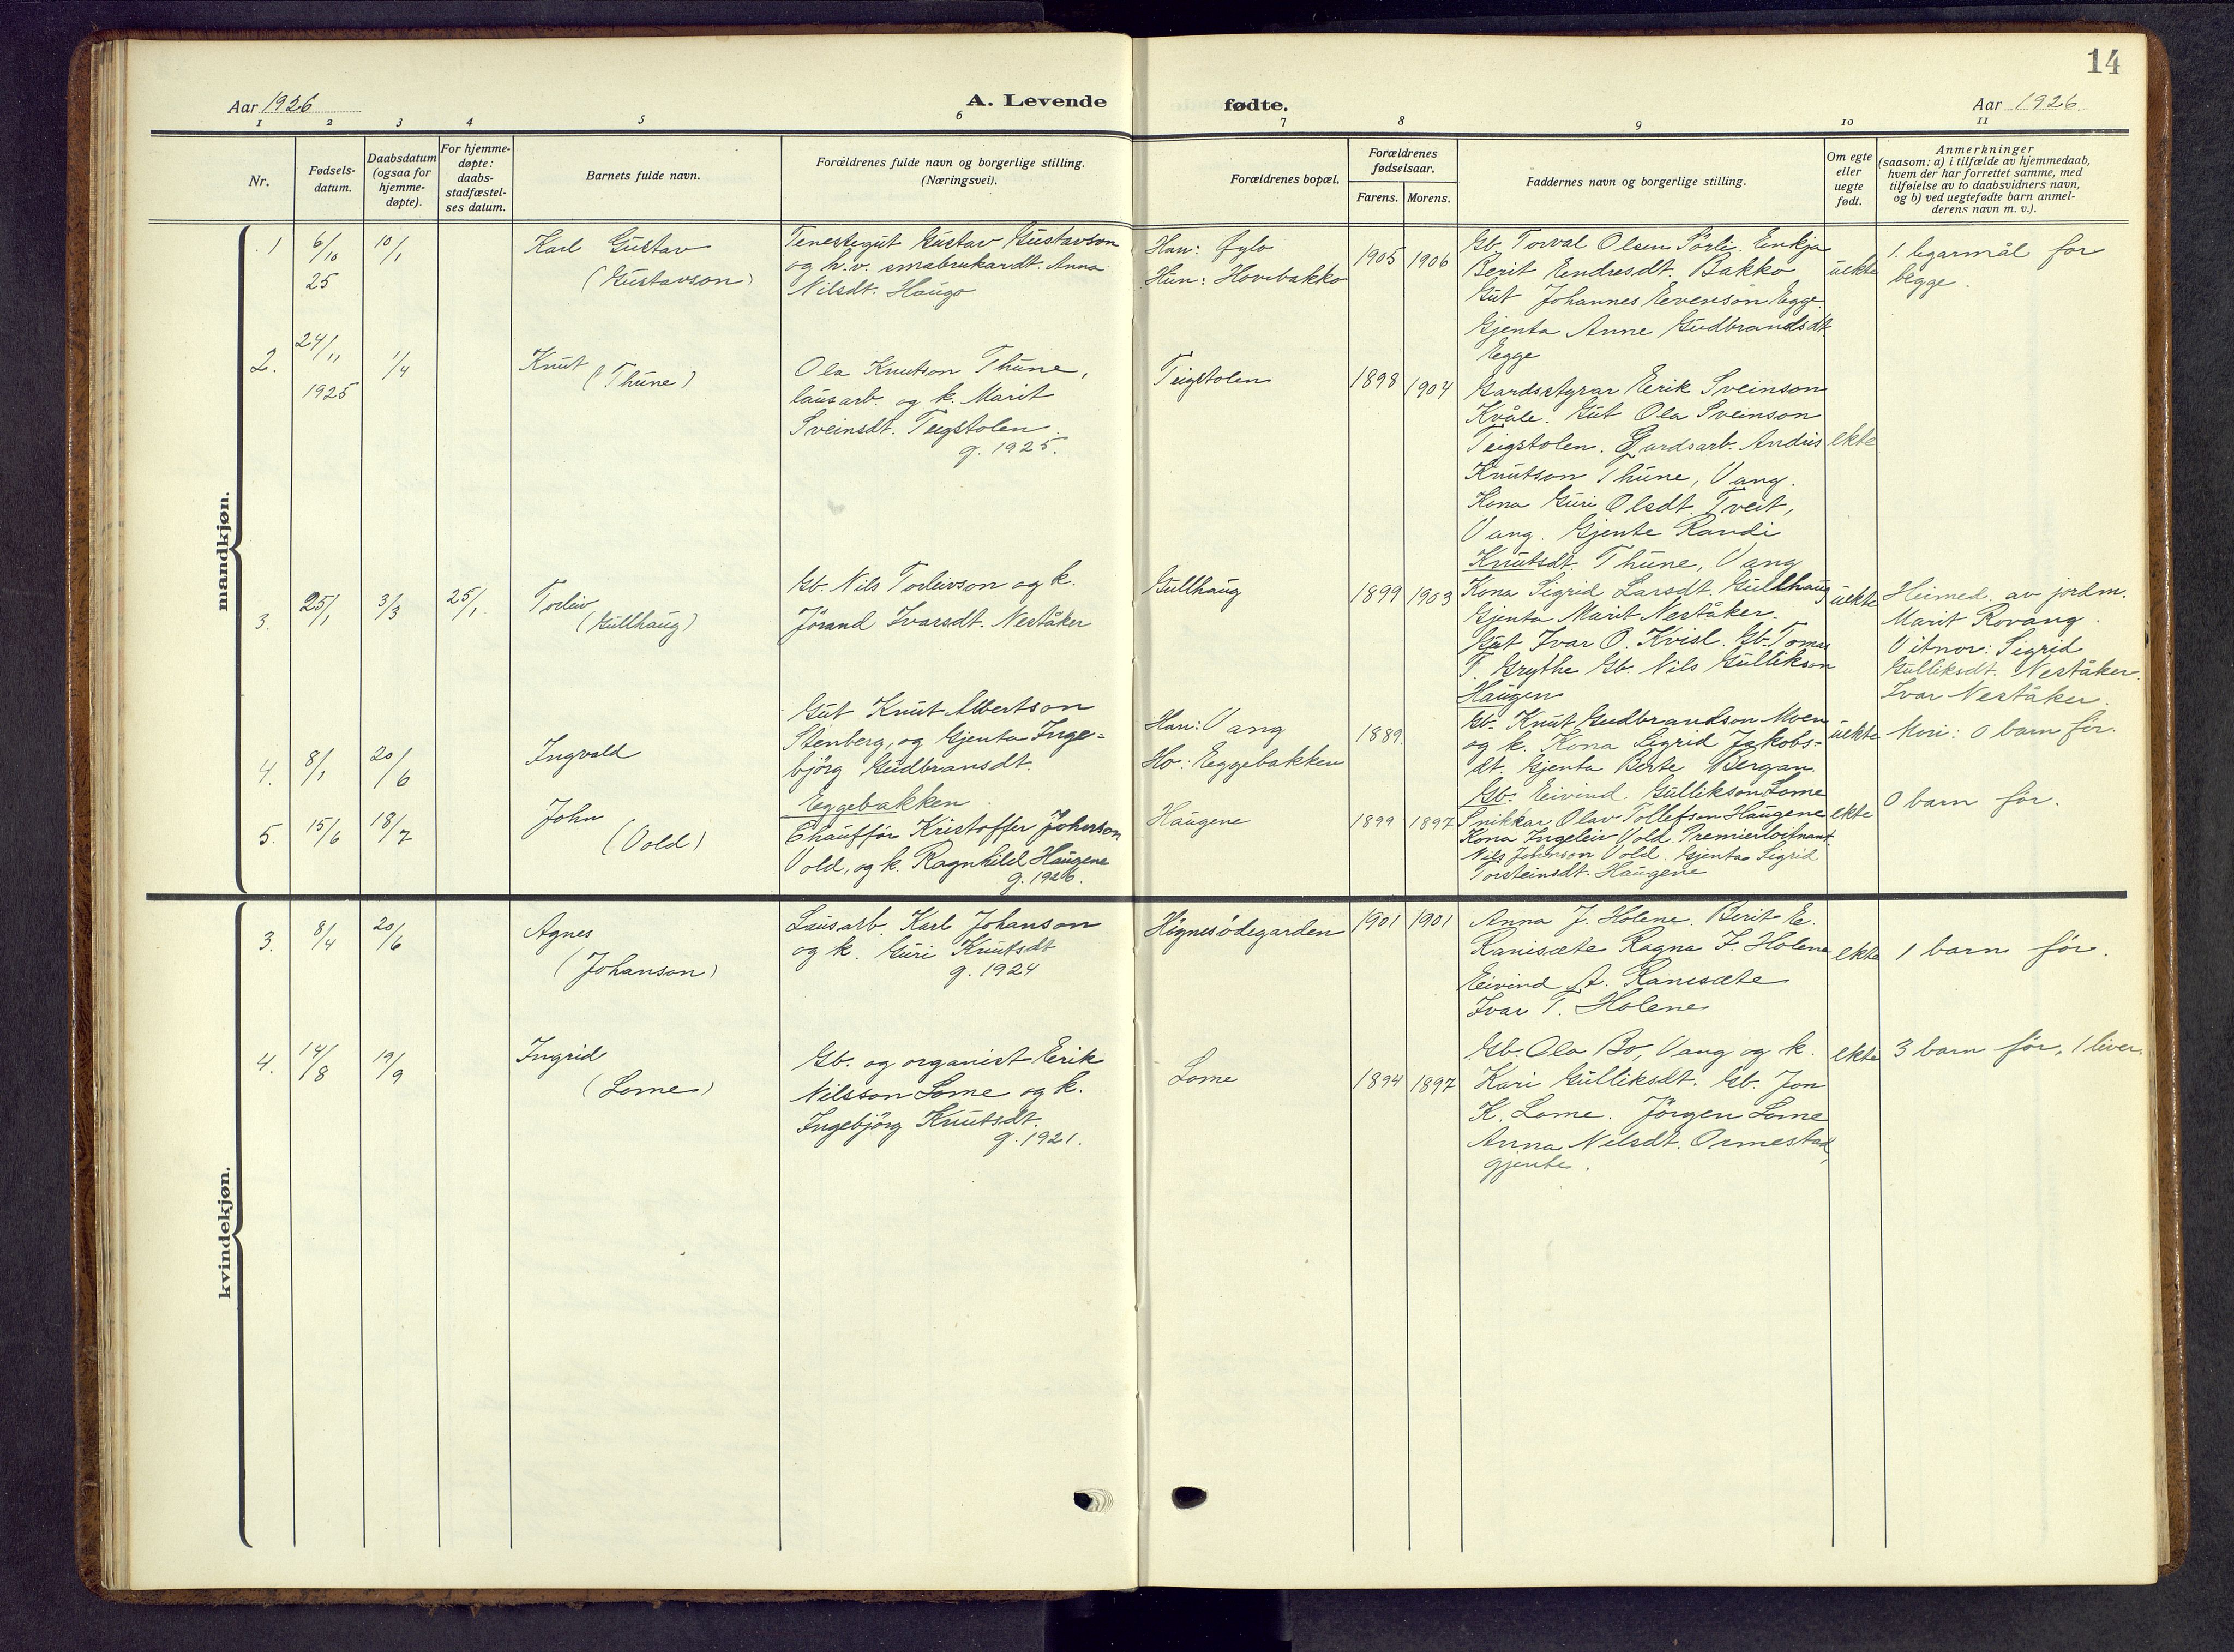 14
Aar 1926
A. Levende
fødte.
Aar 1926.
1 2 3 4 5 6 7 8 9 10 11
Nr.
Fødsels-
datum.
Daabsdatum
(ogsaa for
hjemme-
døpte).
For hjemme-
døpte:
daabs-
stadfæstel-
ses datum.
Barnets fulde navn.
Forældrenes fulde navn og borgerlige stilling.
(Næringsvei).
Forældrenes bopæl.
Forældrenes
fødselsaar.
Farens. Morens.
Faddernes navn og borgerlige stilling.
Om egte
eller
uegte
født.
Anmerkninger
(saasom: a) i tilfælde av hjemmedaab,
hvem der har forrettet samme, med
tilføielse av to daabsvidners navn,
og b) ved uegtefødte barn anmel-
derens navn m. v.).
mandkjøn.
1
6/10
25
10/1
Karl Gustav
(Gustavson)
Tenestegut Gustav Gustavson
og h.v. smabrukardt. Anna
Nilsdt. Haugo
Han: Øylo
Hun: Hovsbakko
1905
1906
Gb. Torval Olsen Sörli. Enkja
Berit Endresdt. Bakko
Gut Johannes Evenson Egge
Gjenta Anne Gudbrandsdt.
Egge
uekte
1. legarmål for
begge.
2.
24/11
1925
1/4
Knut
(Thune)
Ola Knutson Thune,
lausarb. og k. Marit
Sveinsdt. Teigstolen.
g. 1925.
Teigstolen
1898
1904
Gardsstyrar Eerik Sveinson
Kvåle. Gut Ola Sveinson
Teigstolen. Gardsarb. Andris
Knutson Thune, Vang.
Kona Guri Olsdt. Tveit,
Vang. Gjente Randi
Knutsdt. Thune, Vang
ekte
3.
25/1
3/3
25/1
Torleiv
(Gullhaug)
Gb. Nils Torleivson og k.
Jörand Ivarsdt. Neståker
Gullhaug
1899
1903
Kona Sigrid Larsdt. Gullhaug
Gjenta Marit Neståker.
Gut Ivar O. Kvisl. Gb. Tomas
T. Grythe Gb. Nils Gullikson
Haugen
uekte
Heimed. av jordm.
Marit Rovang.
Vitnor: Sigrid
Gulliksdt. Neståker.
Ivar Neståker.
4.
8/1
20/6
Ingvald
Gut Knut Albertson
Stenberg, og Gjenta Inge=
björg Gudbransdt.
Eggebakken.
Han: Vang
Ho: Eggebakken
1889.
Gb. Knut Gudbrandson Moen
og k. Kona Sigrid Jakobs=
dt. Gjenta Berte Bergan.
Gb. Eivind Gullikson Lome
uekte
Mori: 0 barn för.
5.
15/6
18/7
John
(Vold)
Chauffør Kristoffer Johnson
Vold, og k. Ragnhild Haugene
g. 1926.
Haugene
1899
1897
Snikkar Olav Tollefson Haugene
Kona Ingeleiv Vold. Premierløitnant
Nils Johnson Vold. Gjenta Sigrid
Torsteinsdt. Haugene
ekte
0 barn för.
kvindekjøn.
3.
8/4
20/6
Agnes
(Johanson)
Lausarb. Karl Johanson
og k. Guri Knutsdt
g. 1924
Högnesödegarden
1901
1901
Anna J. Holene. Berit E.
Ranisæte Ragna I. Holene
Eivind A. Ranisæte
Ivar T. Holene
ekte
1 barn för.
4.
14/8
19/9
Ingrid
(Lome)
Gb. og organist Eerik
Nilsson Lome og k.
Ingebjörg Knutsdt.
g. 1921.
Lome
1894
1897
Gb. Ola Bo, Vang og k.
Kari Gulliksdt. Gb. Jon
K. Lome. Jörgen Lome
Anna Nilsdt. Ormestad,
gjente.
ekte
3 barn för, 1 liver.